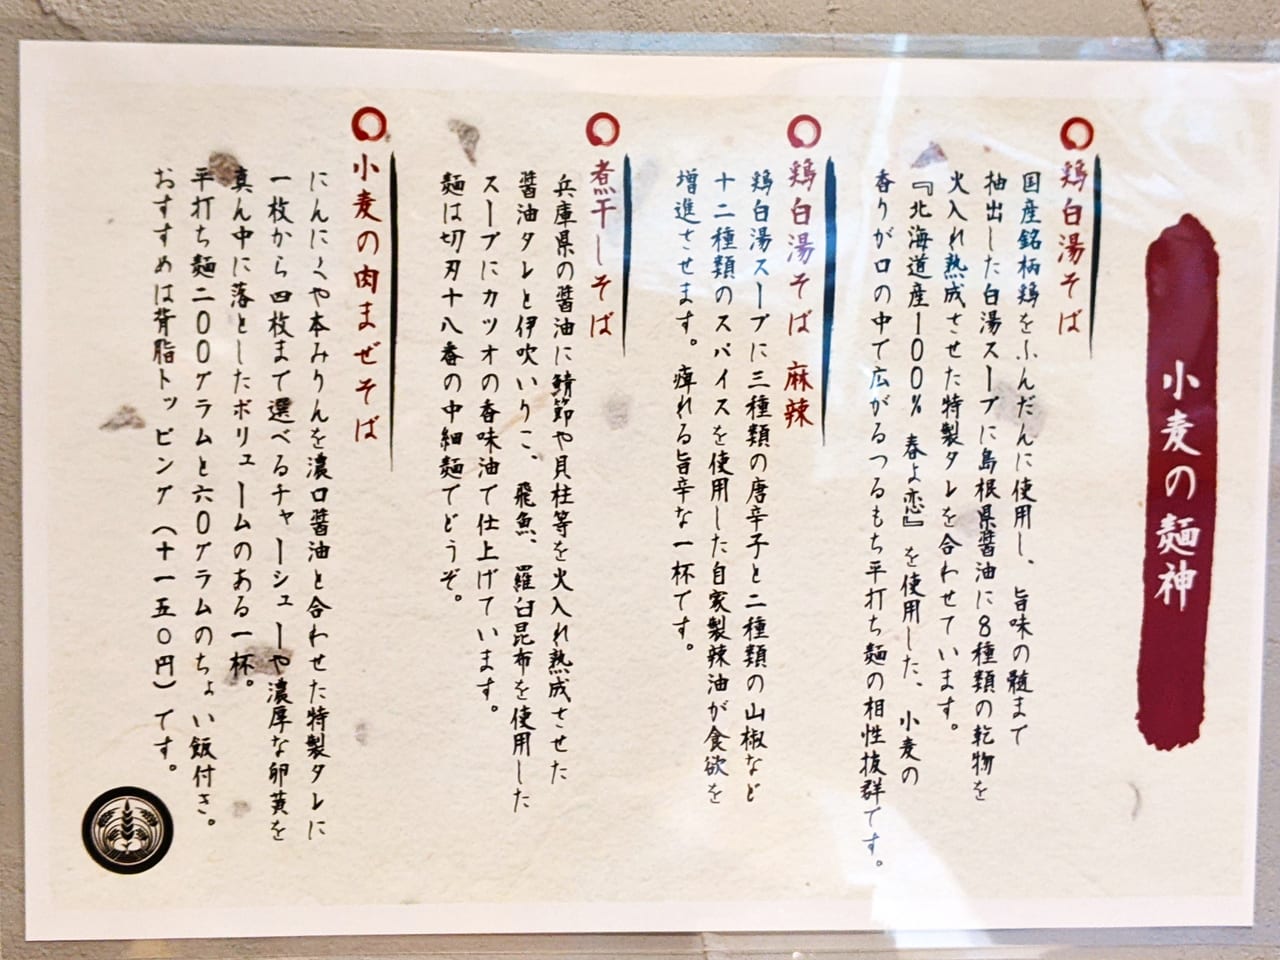 小麦の麺神
鶏白湯そば
国産銘柄鶏をふんだんに使用し、旨味の髄まで
抽出した白湯スープに島根県醤油に8種類の乾物を
火入れ熟成させた特製タレを合わせています。
『北海道産100%春よ恋』を使用した、小麦の
香りが口の中で広がるつるもち平打ち麺の相性抜群です。
鶏白湯そば 麻辣
鶏白湯スープに三種類の唐辛子と二種類の山椒など
十二種類のスパイスを使用した自家製辣油が食欲を
増進させます。痺れる旨辛な一杯です。
煮干しそば
兵庫県の醤油に鯖節や貝柱等を火入れ熟成させた
醤油タレと伊吹いりこ、飛魚、羅臼昆布を使用した
スープにカツオの香味油で仕上げています。
麺は切刃十八番の中細麺でどうぞ。
小麦の肉まぜそば
にんにくや本みりんを濃口醤油と合わせた特製タレに
一枚から四枚まで選べるチャーシューや濃厚な卵黄を
真ん中に落としたボリュームのある一杯。
平打ち麺二00グラムと六0グラムのちょい飯付き。
おすすめは背脂トッピング(十一五0円)です。